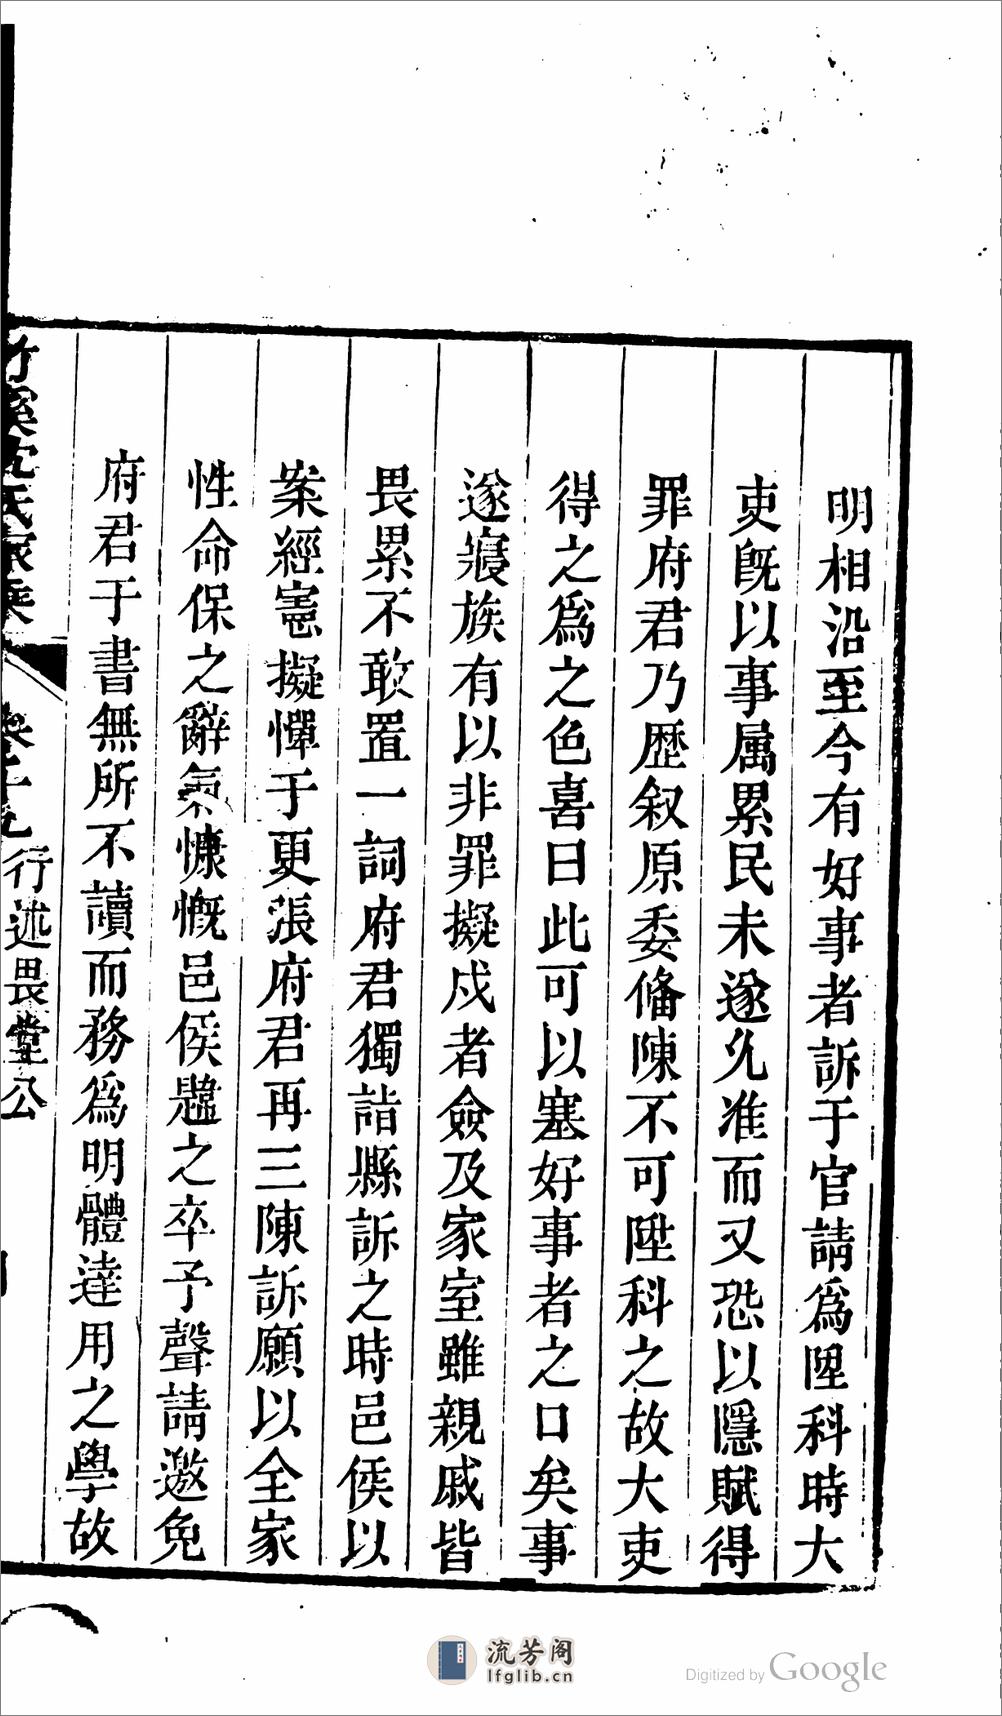 明相沿至今有好事者訴于官請爲陞科時大
吏旣以事属累民未遂允准而又恐以隱賦得
罪府君乃歷叙原委俻陳不可陞科之故大吏
得之爲之色喜曰此可以塞好事者之口矣事
遂寢族有以非罪擬戍者僉及家室雖親戚皆
畏累不敢置一詞府君獨詣縣訴之時邑侯以
案經憲擬憚于更張府君再三陳訴願以全家
性命保之辭氣慷慨邑侯韙之卒予聲請邀免
府君于書無所不讀而務爲明體達用之學故
竹溪沈氏家乘 行述畏堂公
流芳阁
lfglib.cn
Digitized by Google